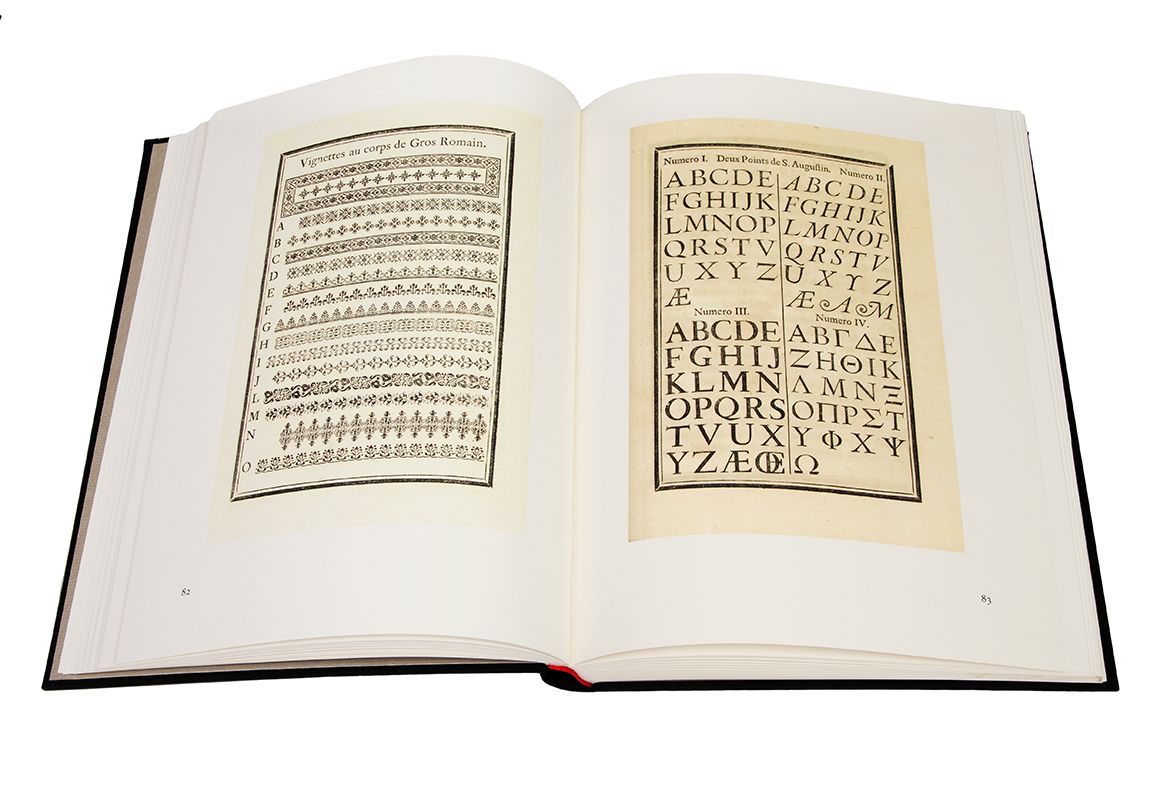 Vignettes au corps de Gros Romain.
A
B
C
D
E
F
G
H
I
J
L
M
N
O
82
Numero I. Deux Points de S. Auguſtin. Numero II.
ABCDE
FGHIJK
LMNOP
QRSTV
UXYZ
Æ
ABCDE
FGHIJK
LMNOP
QRSTV
UXYZ
ÆAM
Numero III.
ABCDE
FGHIJ
KLMN
OPQRS
TVUX
YZÆŒ
Numero IV.
ΑΒΓΔΕ
ΖΗΘΙΚ
ΛΜΝΞ
ΟΠΡΣΤ
ΥΦΧΨ
Ω
83